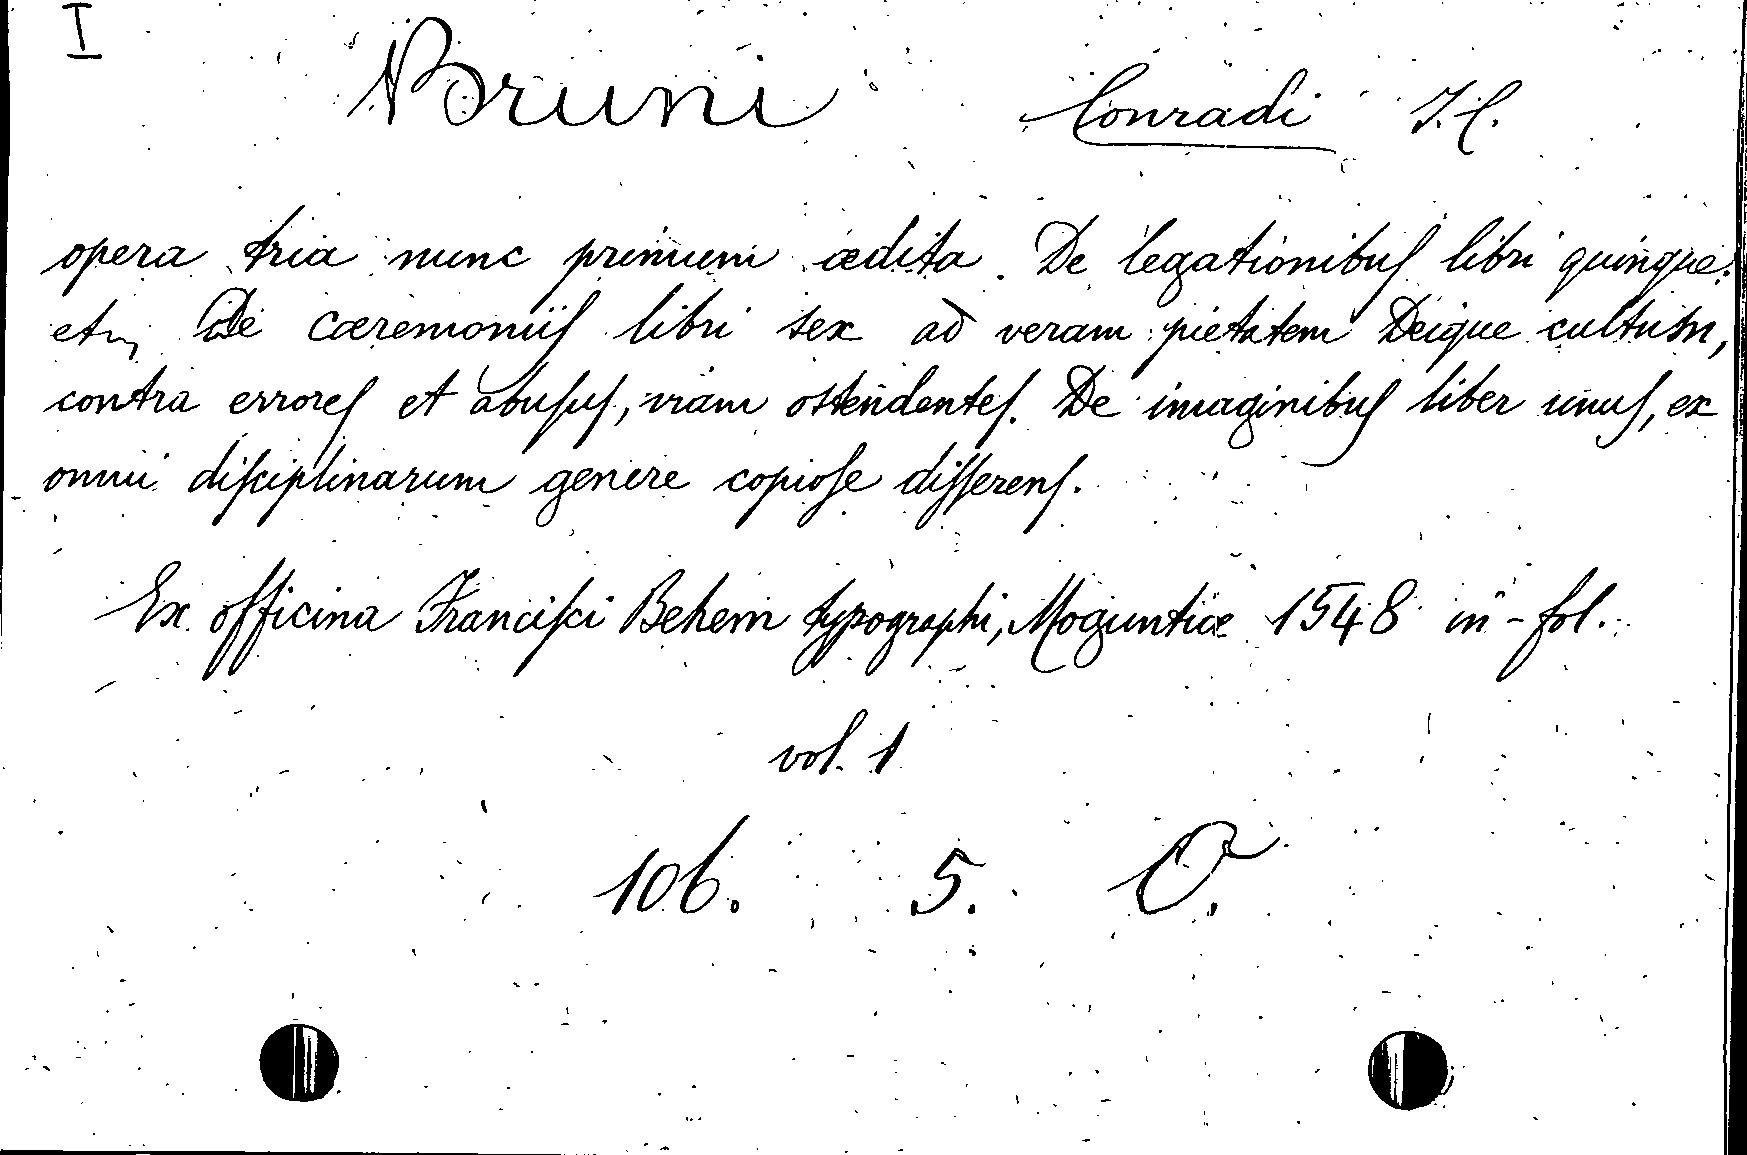 I
Bruni Conradi J.C.
opera tria nunc primum ædita. De legationibus libri quinque.
et, De cæremoniis libri sex ad veram pietatem Deique cultum,
contra errores et abusus, viam ostendentes. De imaginibus liber unus, ex
omni disciplinarum genere copiose disserens.
Ex officina Francisci Behem typographi, Moguntiæ 1548 in-fol.
vol. 1
106. 5. O.